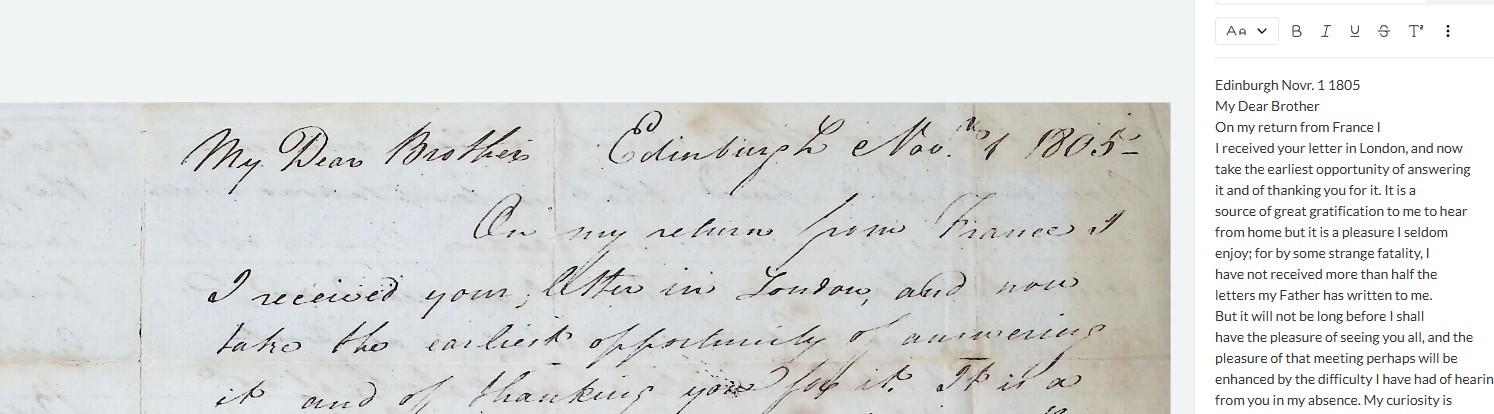 My Dear Brother Edinburgh Novr. 1 1805
On my return from France I
I received your letter in London, and now
take the earliest opportunity of answering
it and of thanking you for it. It is a
Aa B I U S T
Edinburgh Novr. 1 1805
My Dear Brother
On my return from France I
I received your letter in London, and now
take the earliest opportunity of answering
it and of thanking you for it. It is a
source of great gratification to me to hear
from home but it is a pleasure I seldom
enjoy; for by some strange fatality, I
have not received more than half the
letters my Father has written to me.
But it will not be long before I shall
have the pleasure of seeing you all, and the
pleasure of that meeting perhaps will be
enhanced by the difficulty I have had of hearin
from you in my absence. My curiosity is